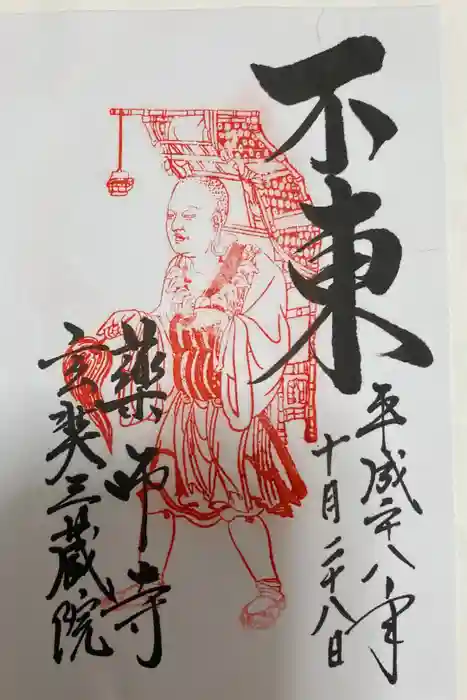 不東
平成二十八年
十月二十八日
薬師寺
玄奘三蔵院